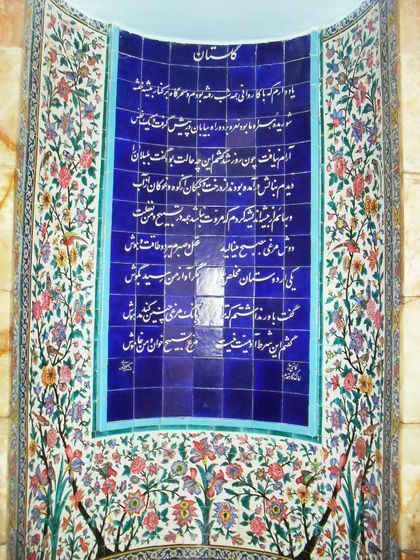 گلستان
یاد دارم که با کاروانی همه شب رفته بودم و سحرگاه بر کنار بیشه خفته
شوریده همراه ما بود نعره بزد و راه بیابان در پیش گرفت و یک نفس
آرام نیافت چون روز شد گفتمش این چه حالت بود گفت بلبلان را
دیدم بنالش در آمده بودند از درخت و کبکان از کوه و غوکان از آب
و بهایم از بیشه اندیشه کردم که مروت نباشد همه در تسبیح و من بغفلت
دوش مرغی بصبح مینالید عقل و صبرم ببرد و طاقت و هوش
یکی از دوستان مخلص را مگر آواز من رسید بگوش
گفت باور نداشتم که ترا بانگ مرغی چنین کند مدهوش
گفتم این شرط آدمیت نیست مرغ تسبیح خوان و من خاموش